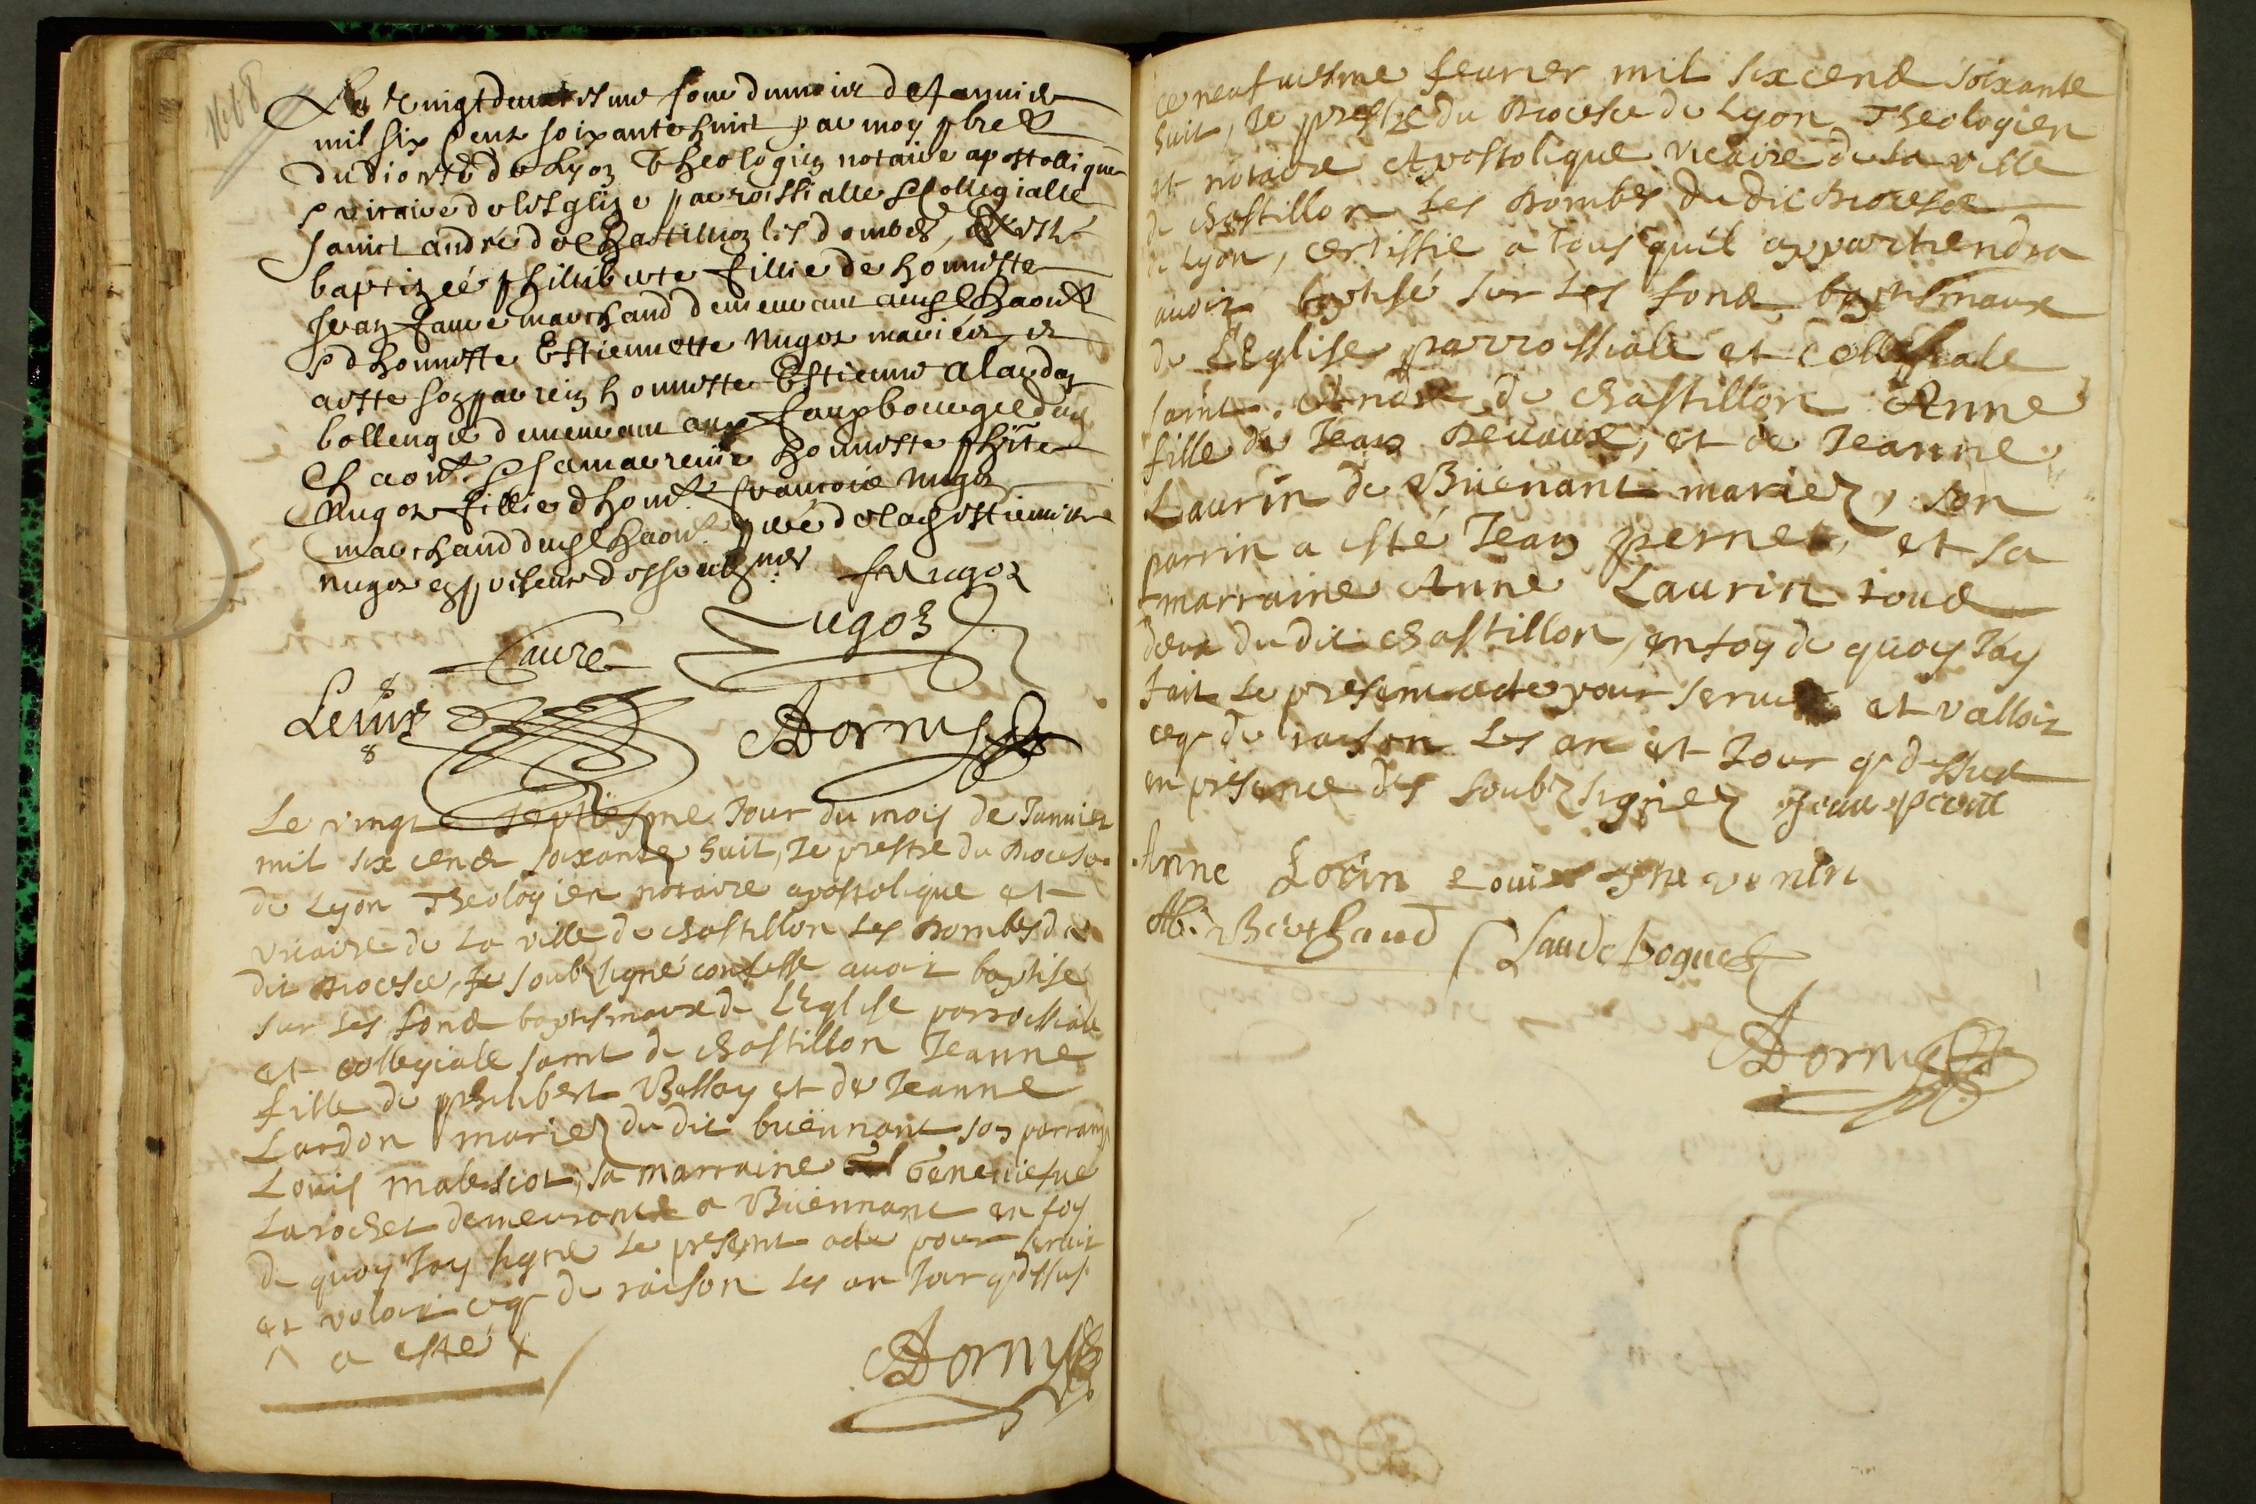 1668
Le vingt deuxiesme jour du mois de Janvier
mil six centz soixante huict par moy pbre
du diocese de Lyon Theologien notaire apostollique
et vicaire de lesglize parroissialle et collegialle
sainct andré de Chastillion les dombes, a esté
baptizéé philliberte fillie de honneste
Jean faure marchand demeurant aud Chaon
et d honneste Estiennette Nugoz mariéz et
a este son parrein honneste Estienne alardon
bollengie demeurant aux fauxbourgz dud
Chaon et sa marreine honneste phte
Nugoz fillie d hon francois Nugoz
marchand dud Chaon
nugoz
f Nugoz
faure
Nugoz
Dornus
Le vingt septiesme Jour du mois de Janvier
mil six cend soixante huit, Je prestre du Diocese
de Lyon Theologien notaire apostolique et
vicaire de la ville de chastillon les Dombes du
dit Diocese, Je soubsigné confesse avoir baptisé
sur les fond baptismaux de l'Eglise parroissiale
et collegiale saint de chastillon Jeanne
fille de philibert Bassay et de Jeanne
Lardon mariez du dit buënnant son parrain
Louis malesciot, sa marraine Geneviefve
Larochet demeurante a Buënnant en foy
de quoy Jay signé le present acte pour servir
et valoir ceq de raison les an Jour q dessus
^ a esté x
Dornus
ce neufviesme fevrier mil six cend soixante
huit, Je prestre du Diocese de Lyon Theologien
et notaire Apostolique vicaire de la ville
de chastillon les Dombes du dit Diocese
de Lyon, certiffie a tous quil appartiendra
avoir baptisé sur les fond baptismaux
de L'Eglise parrossiale et Collegiale
saint Andre de chastillon Anne
fille de Jean Devaux, et de Jeanne
Laurin de Buënant mariez, son
parrin a esté Jean pernet, et sa
marraine Anne Laurin toud
deux du dit chastillon, en foy de quoy Jay
fait le present acte pour servir et valloir
ceq de raison les an et Jour q dessus
en presence des soubzsignez Jean
Anne Lorin Louis thevenin
Berthaud Claude boguet
Dornus